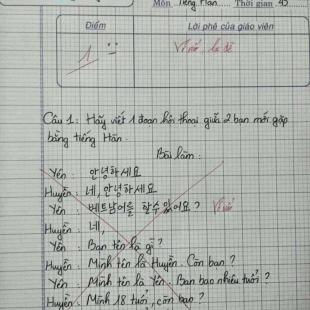 Môn Tiếng Hàn Thời gian 45
Điểm Lời phê của giáo viên
1 Vì nó là đề
Câu 1: Hãy viết 1 đoạn hội thoại giữa 2 bạn mới gặp
bằng tiếng Hàn.
Bài làm:
Yến: 안녕하세요
Huyền: 네, 안녕하세요
Yến: 베트남어를 할수있어요? Vì nó
Huyền: 네,
Yến: Bạn tên là gì?
Huyền: Mình tên là Huyền. Còn bạn?
Yến: Mình tên là Yến. Bạn bao nhiêu tuổi?
Huyền: Mình 18 tuổi, còn bạn?